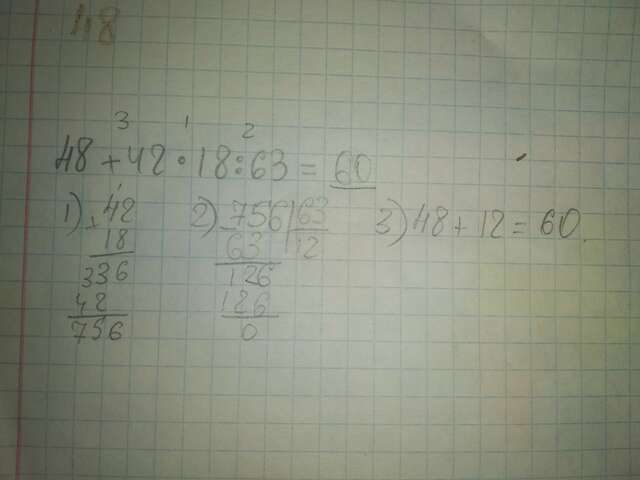 48
3 1 2
48 + 42 · 18 : 63 = 60
1) 42 2) 756 | 63 3) 48 + 12 = 60.
18 63 12
336 126
42 126
756 0